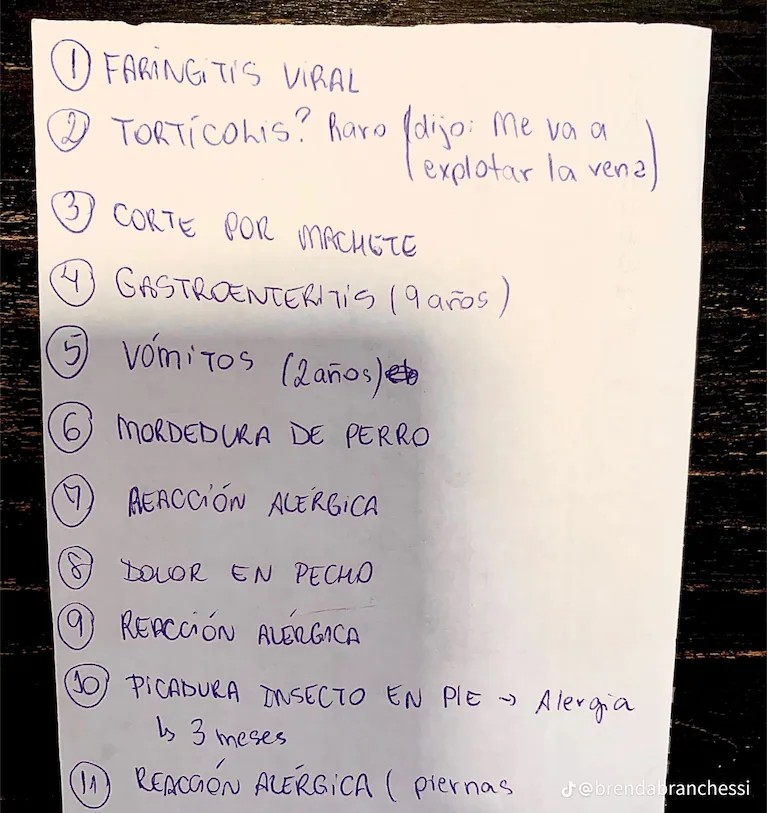 1 FARINGITIS VIRAL
2 TORTÍCOLIS? Raro (dijo: Me va a
explotar la vena)
3 CORTE POR MACHETE
4 GASTROENTERITIS (9 años)
5 VÓMITOS (2 años)
6 MORDEDURA DE PERRO
7 REACCIÓN ALÉRGICA
8 DOLOR EN PECHO
9 REACCIÓN ALÉRGICA
10 PICADURA INSECTO EN PIE → Alergia
↳ 3 meses
11 REACCIÓN ALÉRGICA ( piernas
@brendabranchessi